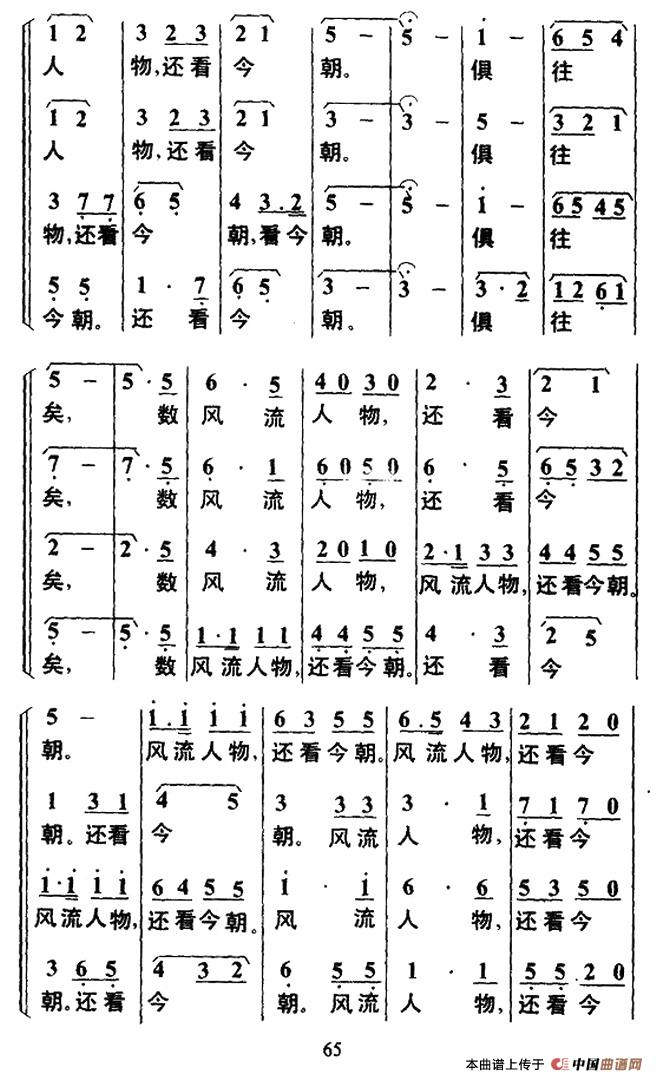 1 2 3 2 3 2 1 5 – 5 – i – 6 5 4
人 物,还看 今 朝。 俱 往
1 2 3 2 3 2 1 3 – 3 – 5 – 3 2 1
人 物,还看 今 朝。 俱 往
3 7 7 6 5 4 3 . 2 5 – 5 – i – 6 5 4 5
物,还看 今 朝,看今 朝。 俱 往
5 5 1 · 7 6 5 3 – 3 – 3 · 2 1 2 6 1
今 朝。 还 看 今 朝。 俱 往
5 – 5 · 5 6 · 5 4 0 3 0 2 · 3 2 1
矣, 数 风 流 人 物, 还 看 今
7 – 7 · 5 6 · 1 6 0 5 0 6 · 5 6 5 3 2
矣, 数 风 流 人 物, 还 看 今
2 – 2 · 5 4 · 3 2 0 1 0 2 · 1 3 3 4 4 5 5
矣, 数 风 流 人 物, 风流人物, 还看今朝。
5 – 5 · 5 1 · 1 1 1 4 4 5 5 4 · 3 2 5
矣, 数 风流人物, 还看今朝。 还 看 今
5 – i . i i i 6 3 5 5 6 . 5 4 3 2 1 2 0
朝。 风流人物, 还看今朝。 风流人物, 还看今
1 3 1 4 5 3 3 3 3 · 1 7 1 7 0
朝。还看 今 朝。 风流 人 物, 还看今
i · i i i 6 4 5 5 i · i 6 · 6 5 3 5 0
风流人物, 还看今朝。 风 流 人 物, 还看今
3 6 5 4 3 2 6 5 5 1 · 1 5 5 2 0
朝。还看 今 朝。 风流 人 物, 还看今
65
本曲谱上传于 中国曲谱网